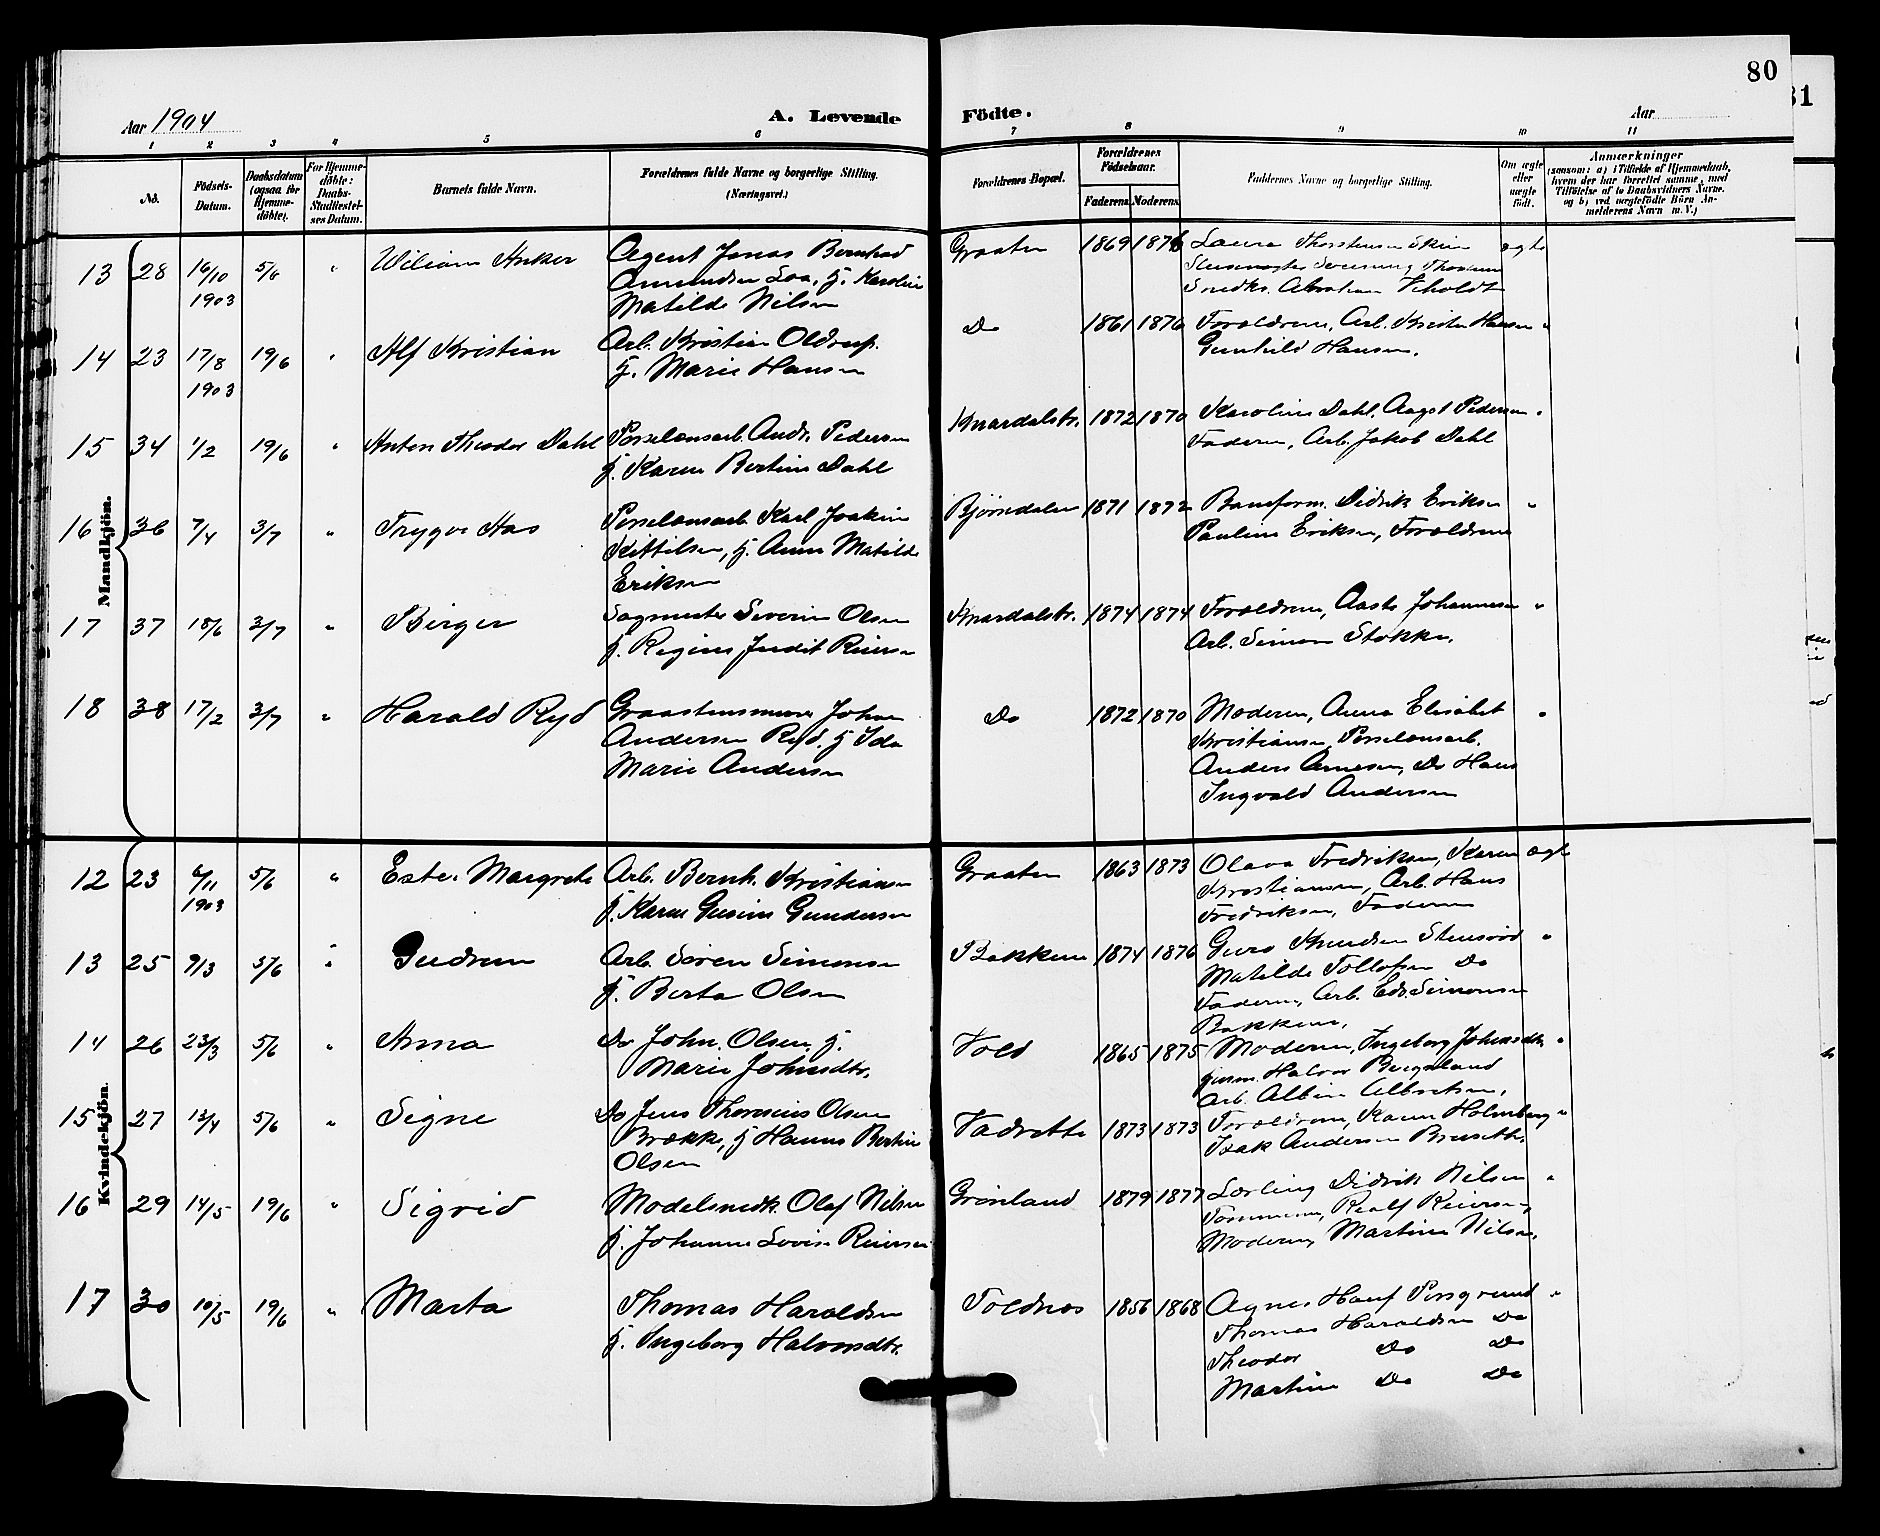 80
31
Aar 1904
A. Levende Födte.
Aar
1 2 3 4 5 6 7 8 9 10 11
No.
Födsels-Datum.
Daabsdatum (ogsaa for Hjemmedöbte).
For Hjemmedöbte: Daabs-Stadfæstelses Datum.
Barnets fulde Navn.
Forældrenes fulde Navne og borgerlige Stilling. (Næringsvei.)
Forældrenes Bopæl.
Forældrenes Födselsaar.
Faderens. Moderens.
Faddernes Navne og borgerlige Stilling.
Om ægte eller uægte födt.
Anmærkninger
(saasom: a) i Tilfælde af Hjemmedaab, hvem der har forrettet samme, med Tilföielse af to Daabsvidners Navne. og b) ved uægtefödte Börn Anmelderens Navn m. V.)
Mandkjön.
13 28 16/10 1903 5/6 " Wiliam Anker
Agent Jonas Bernhard
Amundsen Loa, h. Karoline
Matilde Nilsen
Graaten 1869 1876
Laura Thorstensen Skien ægte
Snedkr. Abraham
14 23 17/8 1903 19/6 " Alf Kristian
Arb. Kristian Oldrup.
h. Marie Hansen
Do 1861 1876
Forældrene, Arb. Kristen Hansen "
Gunhild Hansen.
15 34 1/2 19/6 " Anton Theodor Dahl
Porselænsarb. Andr. Pedersen
h. Karen Bertine Dahl
Knardalstr. 1872 1870
Karoline Dahl, Aagot Pedersen "
Faderen, Arb. Jakob Dahl
16 36 7/4 3/7 " Trygve Aas
Porselænsarb. Karl Joakim
Kittilsen, h. Anne Matilde
Eriksen
Bjørndalen 1871 1872
Baneform. Didrik Eriksen "
Pauline Eriksen, Forældrene
17 37 18/6 3/7 " Birger
Sagmester Severin Olsen
h. Regine Judit Reiersen
Knardalstr. 1874 1874
Forældrene, Aaste Johannesen "
Arb. Simon Stokke.
18 38 17/2 3/7 " Harald Ryd
Graastensmurer Johan
Andersen Ryd. h Ida
Marie Andersen
Do 1872 1870
Moderen, Anna Elisabet "
Kristiansen, Porselænsarb.
Anders Arnesen, Do Hans
Ingvald Andersen
Kvindekjön.
12 23 6/11 1903 5/6 " Ester Margrete
Arb. Bernh. Kristiansen
h. Karen Gusine Gundersen
Graaten 1863 1873
Olava Fredriksen, Karen ægte
Kristiansen, Arb. Hans
Fredriksen, Faderen
13 25 9/3 5/6 " Gudrun
Arb. Søren Simonsen
h. Berta Olsen
Bakken 1874 1876
Guro Knudsen Stensrød "
Matilde Tollefsen Do
Faderen, Arb. Edv. Simonsen
Bakken.
14 26 23/3 5/6 " Anna
Do John. Olsen, h.
Marie Johnsdtr.
Vold 1865 1875
Moderen, Ingeborg Johnsdtr. "
Husm. Halvor Bergsland
Arb. Albin Albretsen.
15 27 13/4 5/6 " Signe
Do Jens Thorenius Olsen
Brække, h Hanne Bertine
Olsen
Vadrette 1873 1873
Forældrene, Karen Holmberg "
Isak Andersen
16 29 14/5 19/6 " Sigrid
Modelsnedk. Olaf Nilsen
h. Johanne Lovise Reiersen
Grønland 1879 1877
Lærling Didrik Nilsen "
Reiersen,
Moderen, Martine Nilsen.
17 30 10/5 19/6 " Marta
Thomas Haraldsen
h. Ingeborg Halvorsdtr.
Toldnæs 1856 1868
Agnes Hauf Porsgrund "
Thomas Haraldsen Do
Theodor Do Do
Martin Do Do